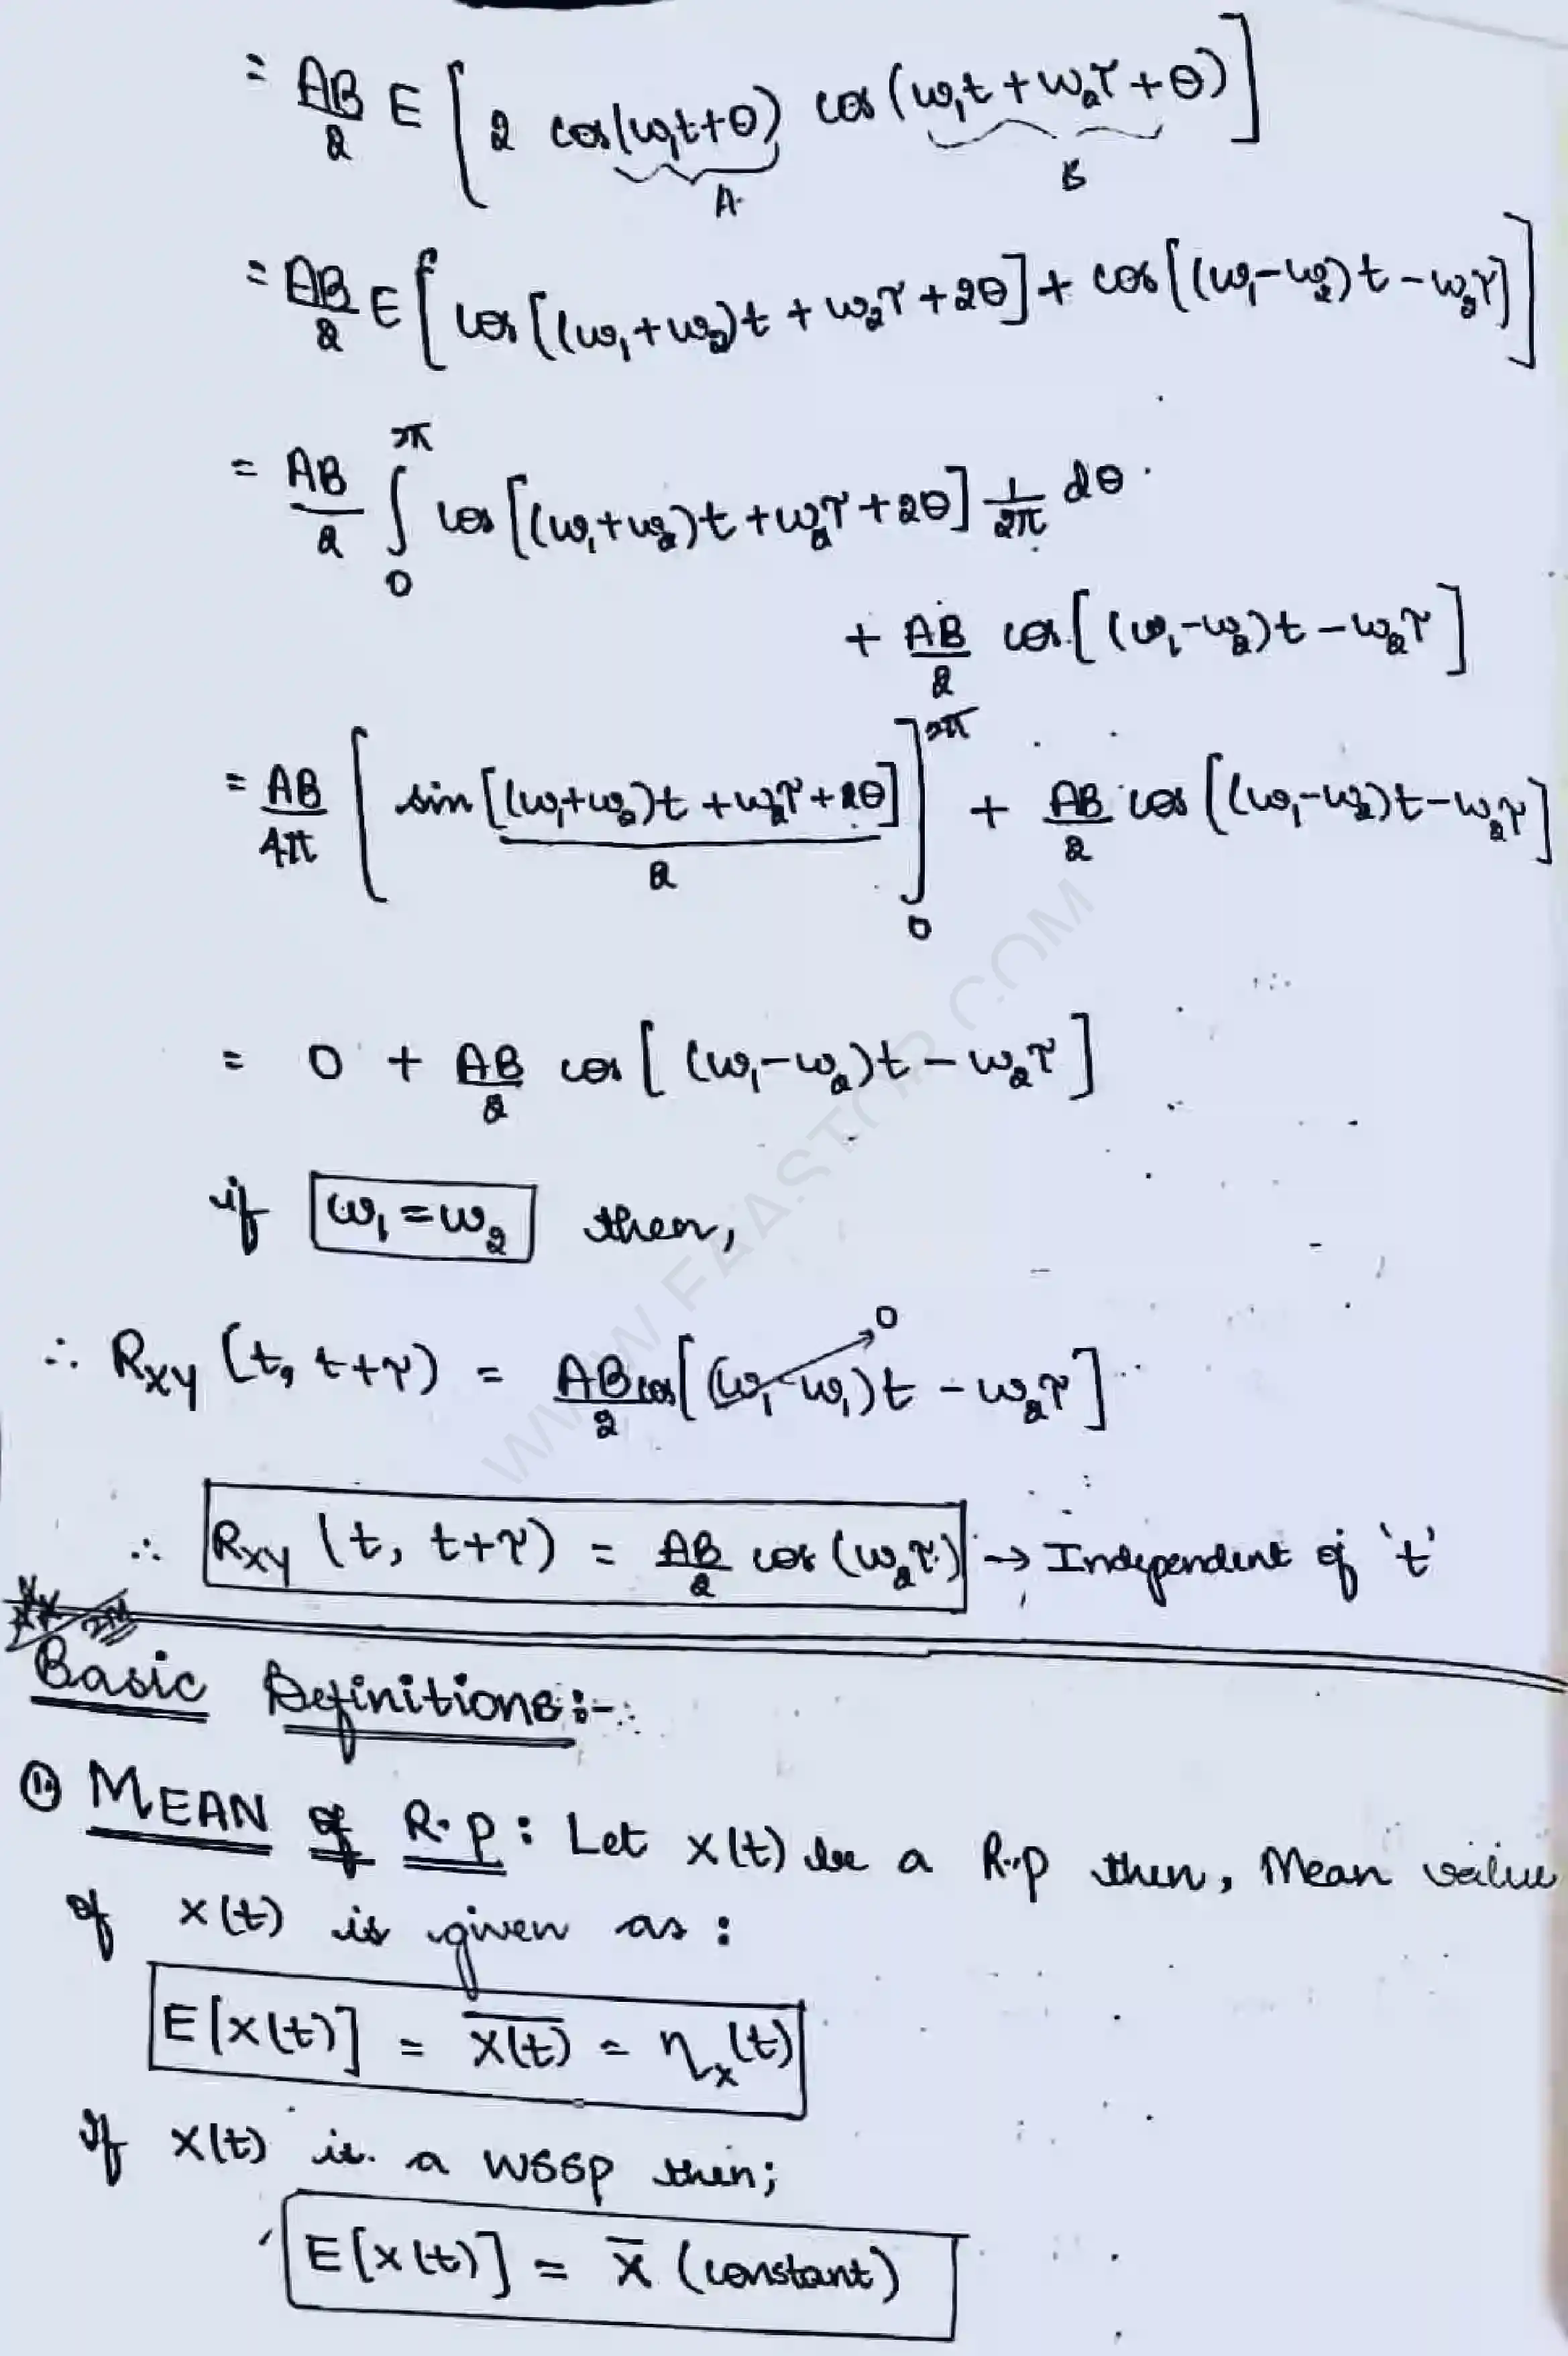 = AB/2 E [2 cos(ω₁t+θ) cos(ω₁t+ω₂τ+θ)]
A B
= AB/2 E [cos[(ω₁+ω₂)t + ω₂τ+2θ] + cos[(ω₁-ω₂)t - ω₂τ]]
= AB/2 ∫₀^2π cos[(ω₁+ω₂)t + ω₂τ+2θ] 1/2π dθ
+ AB/2 cos[(ω₁-ω₂)t - ω₂τ]
= AB/4π [sin[(ω₁+ω₂)t + ω₂τ+2θ]/2]₀^2π + AB/2 cos[(ω₁-ω₂)t - ω₂τ]
= 0 + AB/2 cos[(ω₁-ω₂)t - ω₂τ]
if ω₁=ω₂ then,
∴ Rxy (t, t+τ) = AB/2 cos[(ω₁-ω₁)t - ω₂τ] → 0
∴ Rxy (t, t+τ) = AB/2 cos(ω₂τ) → Independent of 't'
2M
Basic Definitions:-
① MEAN of R.P: Let X(t) be a R.P then, Mean value
of X(t) is given as:
E[X(t)] = X̅(̅t̅)̅ = ηₓ(t)
If X(t) is a WSSP then;
E[X(t)] = X̅ (constant)
WWW.FAASTOP.COM